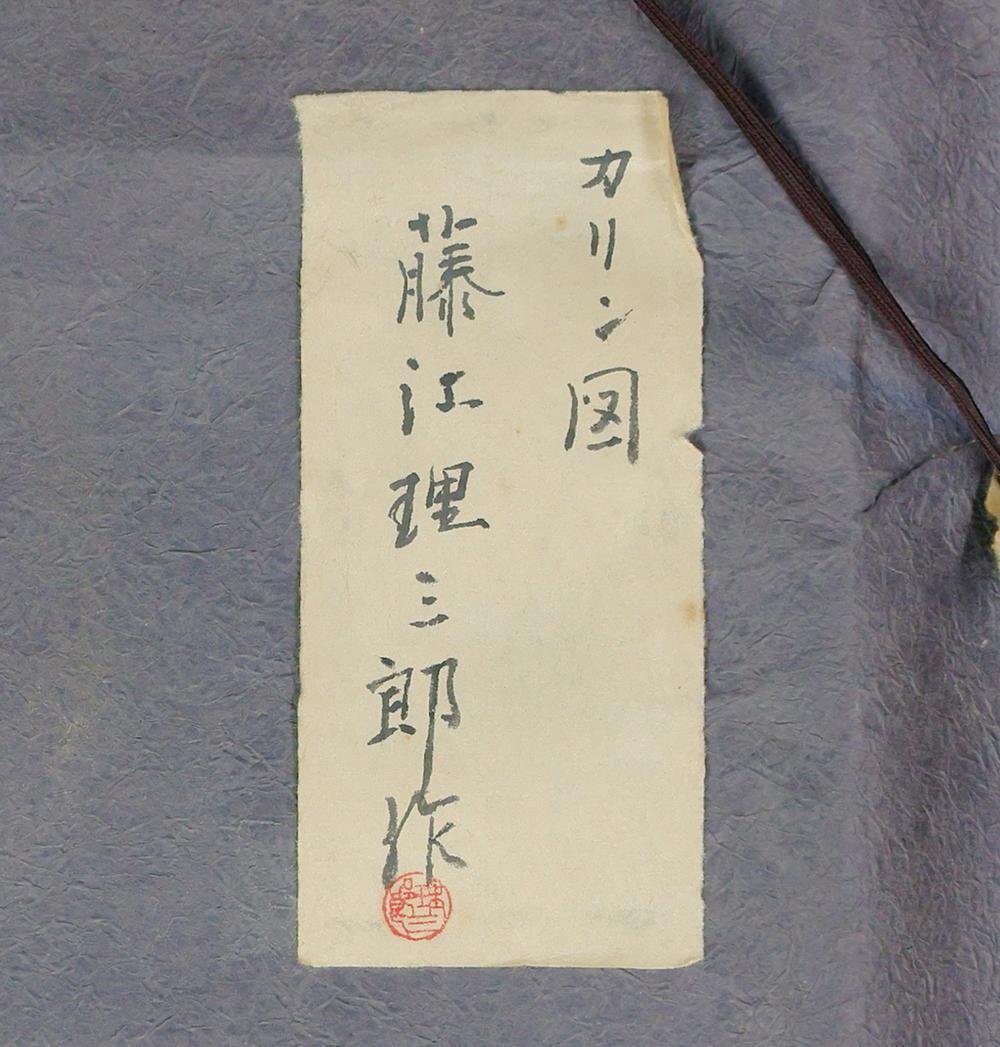 カリン図
藤江理三郎作